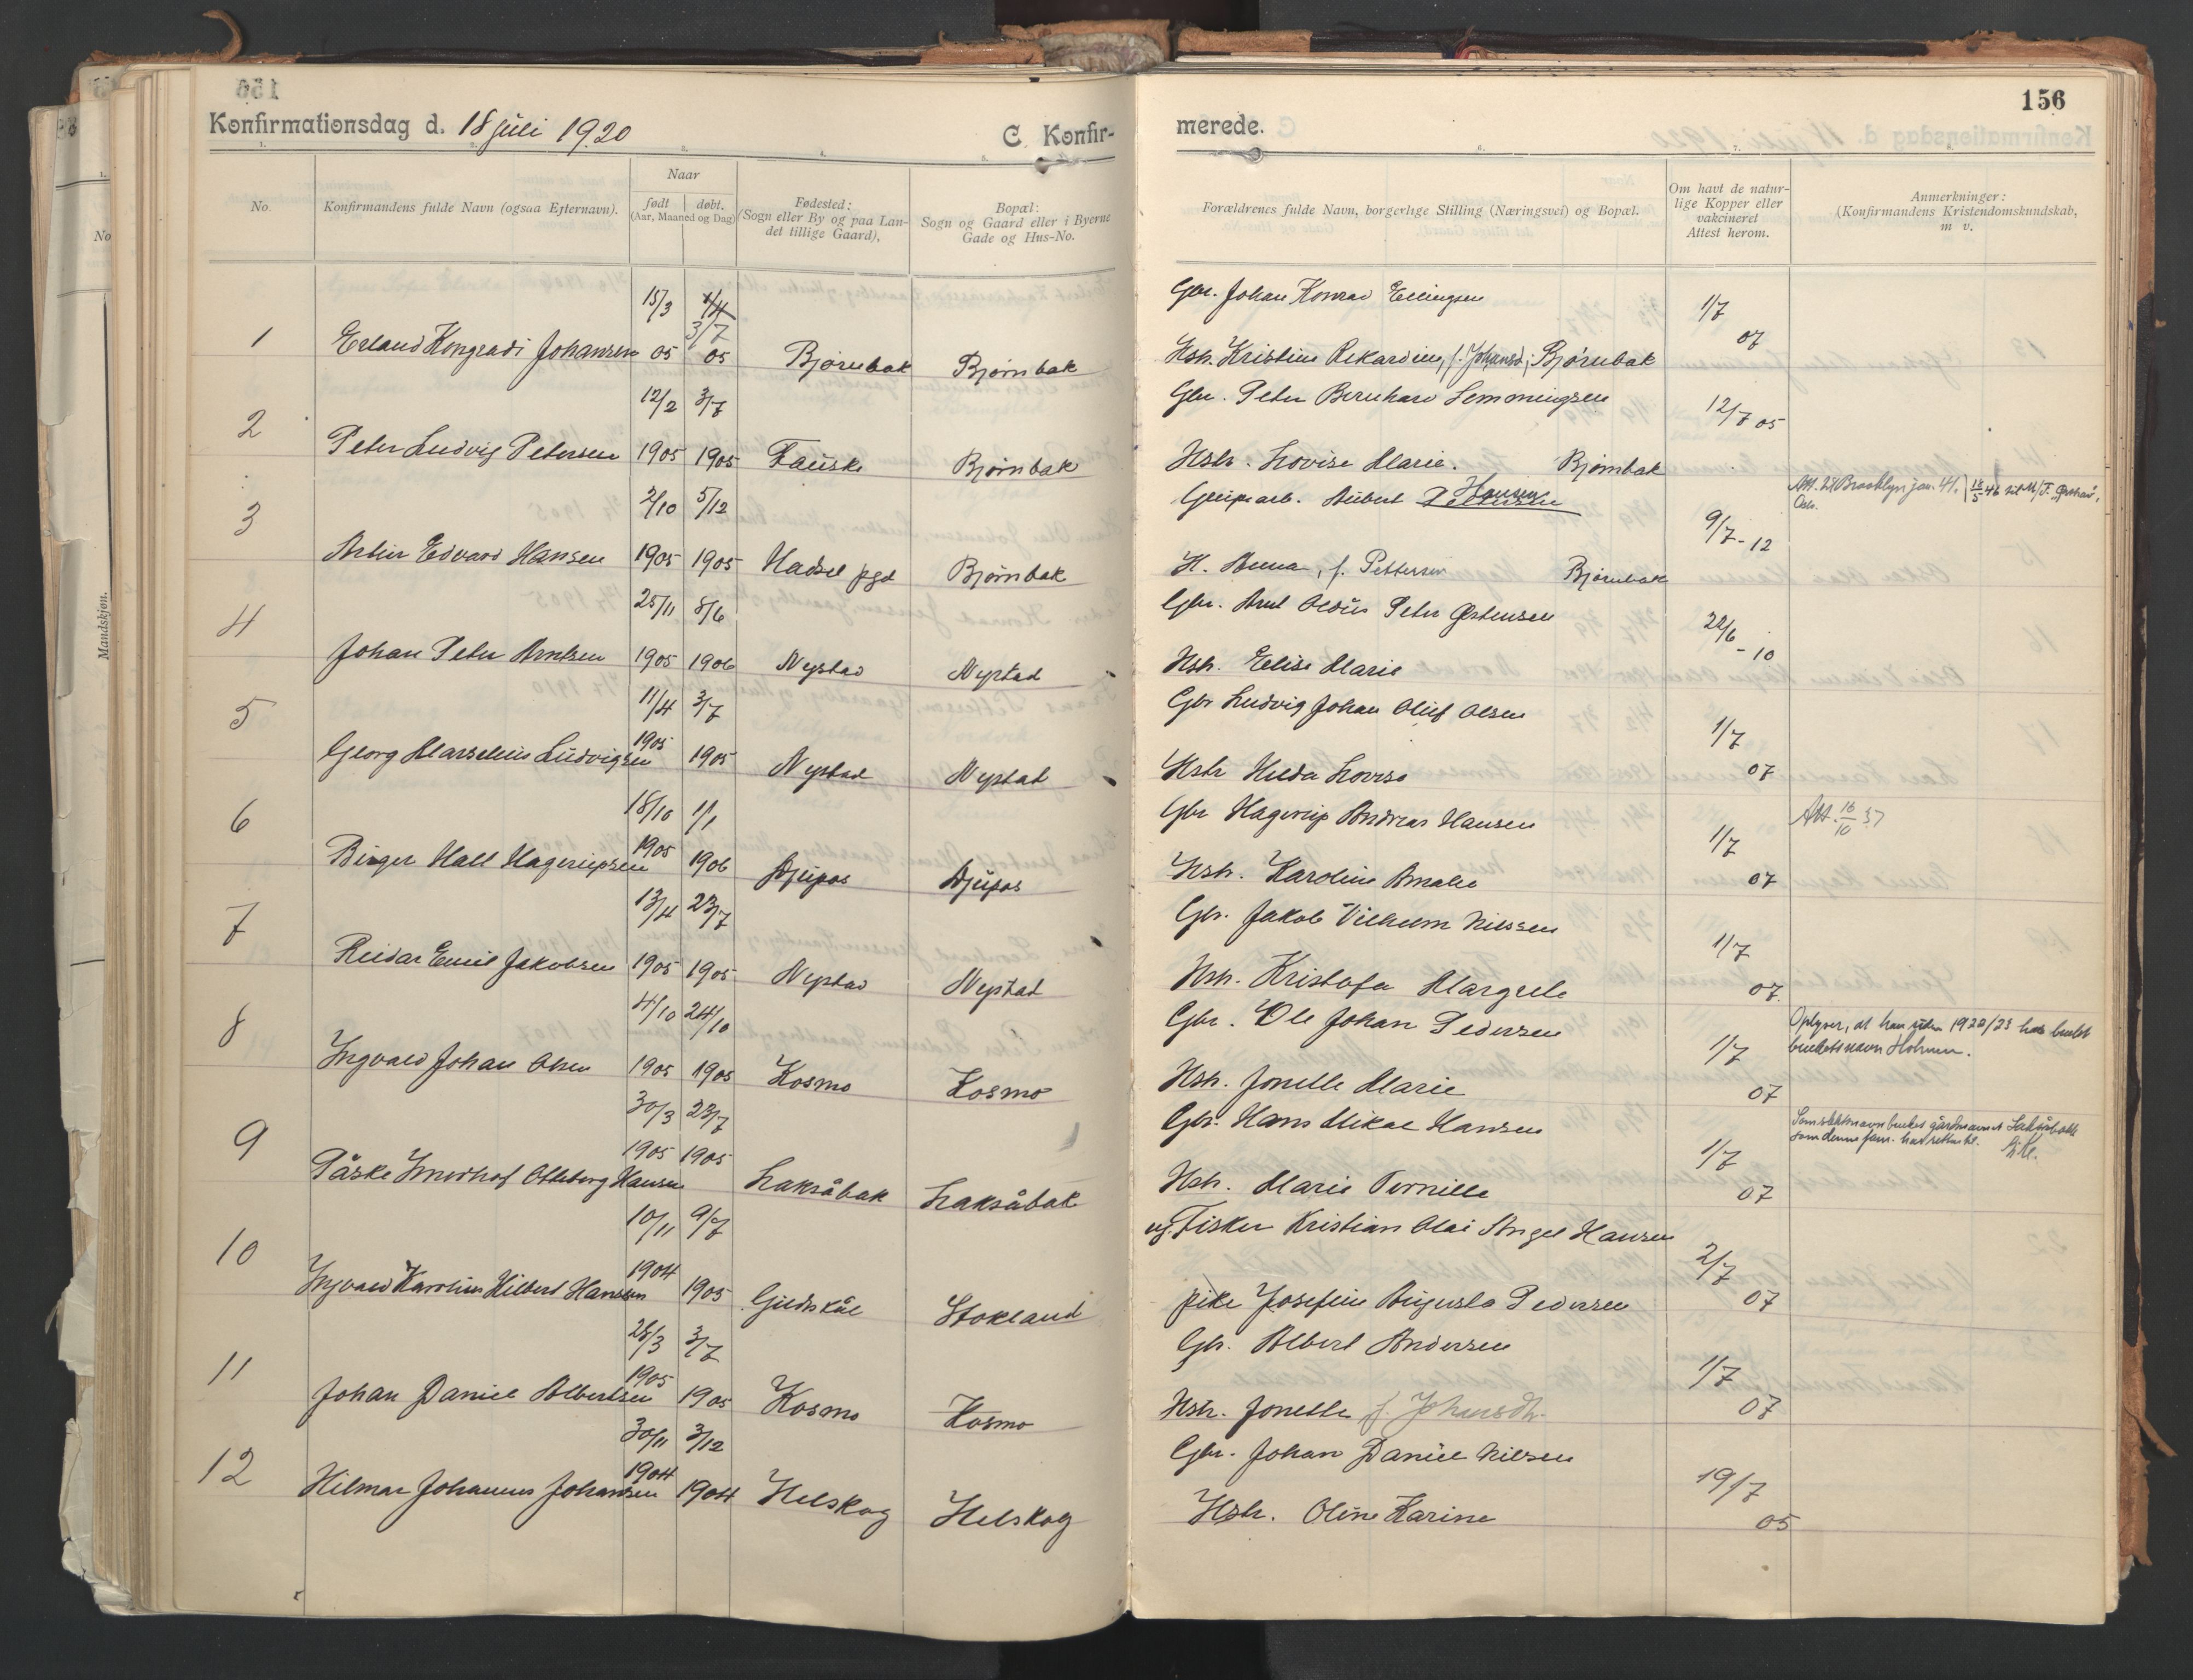 156
Konfirmationsdag d. 18 juli 1920
C. Konfir-
merede.
No.
Konfirmandens fulde Navn (ogsaa Efternavn).
Naar
født
døbt.
(Aar, Maaned og Dag)
Fødested:
(Sogn eller By og paa Lan-
det tillige Gaard).
Bopæl:
Sogn og Gaard eller i Byerne
Gade og Hus-No.
Forældrenes fulde Navn, borgerlige Stilling (Næringsvei) og Bopæl.
Om havt de natur-
lige Kopper eller
vakcineret
Attest herom.
Anmerkninger:
(Konfirmandens Kristendomskundskab,
m v.
No
Mandskjøn.
15/3 1/4 Gbr. Johan Konrad Ellingsen 1/7
3/7
1 Erland Kongradi Johansen 05 05 Bjørnbak Bjørnbak Hstr. Kristine Rekardine, f. Johansd; Bjørnbak 07
12/2 3/7 Gbr. Peter Bernhard Lemmingsen 12/7 05
2 Peter Ludvig Petersen 1905 1905 Fauske Bjørnbak Hstr. Lovise Marie. Bjørnbak
2/10 5/12 Grubearb. Albert Pettersen Hansen Att. til Brooklyn jan. 41.
9/7-12
3 Artur Edvard Hansen 1905 1905 Hadsel pgd Bjørnbak H. Anna, f. Pettersen Bjørnbak
25/11 8/6 Gbr. Arnt Oldus Peter Østensen
4 Johan Peter Arntsen 1905 1906 Nystad Nystad Hstr. Elise Marie 22/6-10
11/4 3/7 Gbr Ludvig Johan Oluf Olsen 1/7
5 Georg Marselius Ludvigsen 1905 1905 Nystad Nystad Hstr Hilda Lovise 07
18/10 1/1 Gbr Hagerup Andreas Hansen Att. 16/10 37
1/7
6 Birger Hall Hagerupsen 1905 1906 Djupos Djupos Hstr. Karoline Amalie 07
13/4 23/7 Gbr. Jakob Vilhelm Nilssen 1/7
7 Reidar Emil Jakobsen 1905 1905 Nystad Nystad Hstr. Kristofa Margrete 07
4/10 24/10 Gbr. Ole Johan Pedersen Oplyser, at han siden 1922/23 har brukt
bruketsnavn Holmen.
1/7
8 Ingvald Johan Olsen 1905 1905 Kosmo Kosmo Hstr. Jonette Marie 07
30/3 23/7 Gbr. Hans Mikal Hansen Som slektsnavn brukes gårdsnavnet Laksåbakk
som denne fam. har rett til.
1/7
9 Påske Imerhof Olleberg Hansen 1905 1905 Laksåbak Laksåbak Hstr. Marie Pernille 07
10/11 9/7 ug. Fisker Kristian Olai Angel Hansen 2/7
10 Ingvald Karolius Hilbert Hansen 1904 1905 Gildeskål Stokland pike Josefine Augusta Pedersen 07
28/3 3/7 Gbr. Albert Andersen 1/7
11 Johan Daniel Albertsen 1905 1905 Kosmo Kosmo Hstr. Jonette f. Johansdtr. 07
30/11 3/12 Gbr. Johan Daniel Nilsen 19/7
12 Hilmar Johannes Johansen 1904 1904 Helskog Helskog Hstr. Oline Karine 05